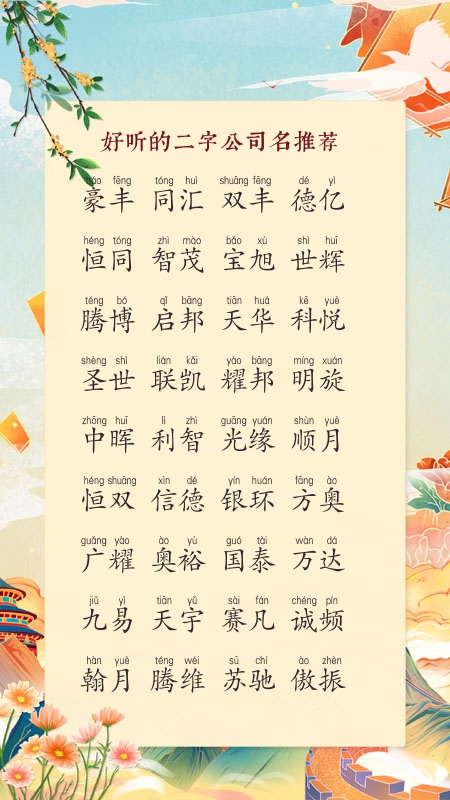 好听的二字公司名推荐
háo fēng tóng huì shuāng fēng dé yì
豪丰 同汇 双丰 德亿
héng tóng zhì mào bǎo xù shì huī
恒同 智茂 宝旭 世辉
téng bó qǐ bāng tiān huá kē yuè
腾博 启邦 天华 科悦
shèng shì lián kǎi yào bāng míng xuán
圣世 联凯 耀邦 明旋
zhōng huī lì zhì guāng yuán shùn yuè
中晖 利智 光缘 顺月
héng shuāng xìn dé yín huán fāng ào
恒双 信德 银环 方奥
guǎng yào ào yù guó tài wàn dá
广耀 奥裕 国泰 万达
jiǔ yì tiān yǔ sài fán chéng pín
九易 天宇 赛凡 诚频
hàn yuè téng wéi sū chí ào zhèn
翰月 腾维 苏驰 傲振